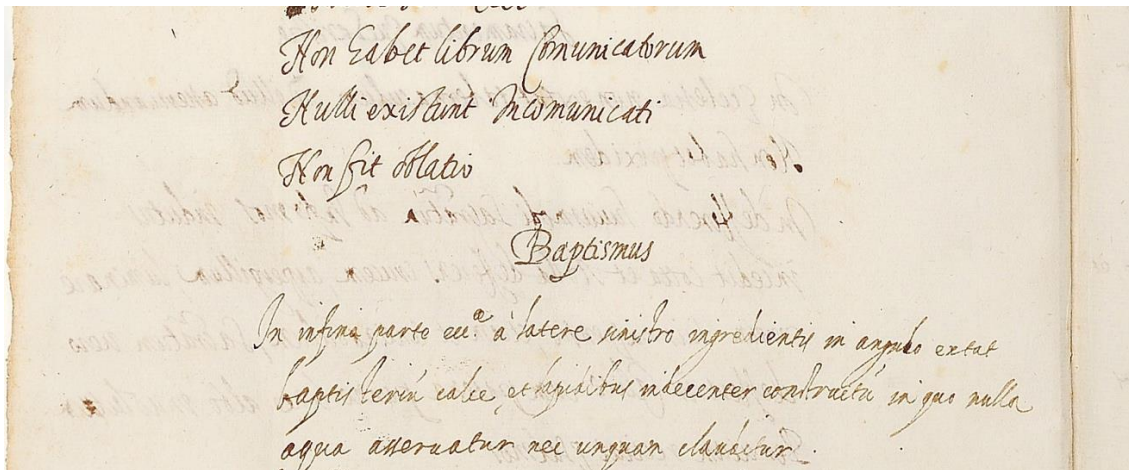 Non habet librum Comunicatorum
Nulli existunt Incomunicati
Non fit oblatio
Baptismus
In infima parte ecc.ª à latere sinistro ingredientis in angulo extat
baptisteriũ calce, et lapidibus indecenter constructũ in quo nulla
aqua asservatur nec unquan clauditur.